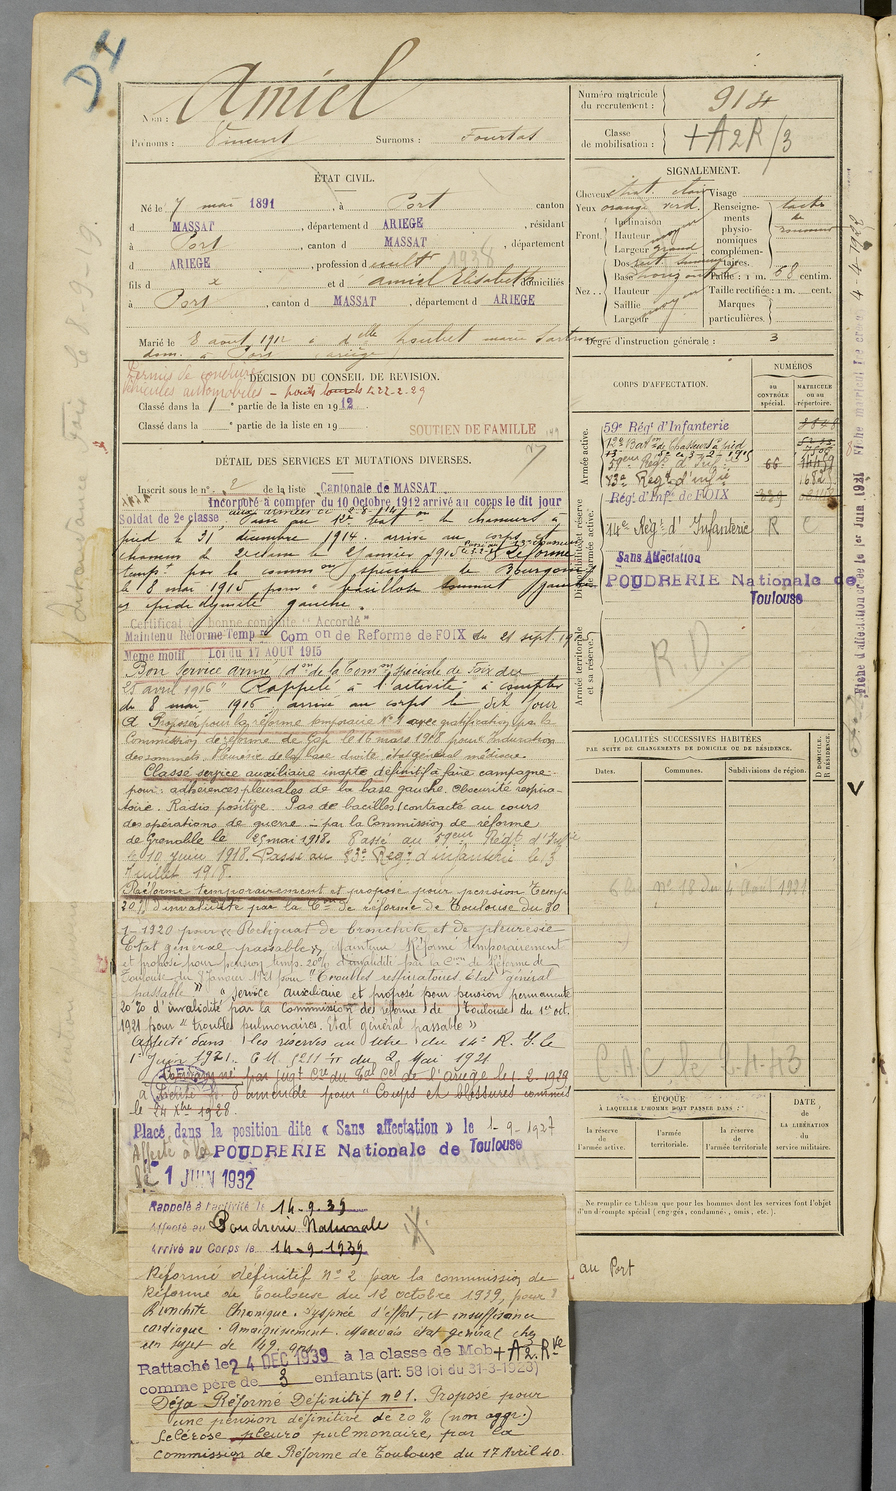 D4
Nom : Amiel
Prénoms : Vincent Surnoms : Fourtat
Numéro matricule du recrutement : 914
Classe de mobilisation : +A2R/3
ÉTAT CIVIL.
Né le 7 mai 1891, à Port canton
d MASSAT, département d ARIEGE, résidant
à Port, canton d MASSAT, département
d ARIEGE, profession d cultr 1938
fils d x et d Amiel Elisabeth domiciliés
à Port, canton d MASSAT, département d ARIEGE
Marié le 8 août 1912 à dlle Loubet marie
dom. à Port ariège
SIGNALEMENT.
Cheveux chat. clair Visage
Yeux orange verd. Renseignements physionomiques complémentaires.
Front. Inclinaison
Hauteur moyen
Largeur grand
Nez. Dos
Base horizontale
Hauteur
Saillie moyen
Largeur
Taille : 1 m. 58 centim.
Taille rectifiée : 1 m. cent.
Marques particulières.
Degré d'instruction générale : 3
Permis de conduire
véhicules automobiles - poids lourds 422-2-29
DÉCISION DU CONSEIL DE REVISION.
Classé dans la 1e partie de la liste en 1912
Classé dans la e partie de la liste en 19
SOUTIEN DE FAMILLE
DÉTAIL DES SERVICES ET MUTATIONS DIVERSES.
Inscrit sous le n° 2 de la liste Cantonale de MASSAT
Incorporé à compter du 10 Octobre 1912 arrivé au corps le dit jour
Soldat de 2e classe aux armées
Passé au 12e baton de chasseurs à
pied le 21 décembre 1914. arrivé au corps et
chasseur de 2e classe le 2 janvier 1915 Réformé
tempt par la common spéciale de Bourgoin
le 8 mai 1915 pour
et épididymite gauche.
Certificat de bonne conduite "Accordé"
Maintenu Réformé Tempre Comon de Reforme de FOIX du 21 sept. 1915
Même motif Loi du 17 AOUT 1915
Bon service armé don de la Comon spéciale de Foix du
25 avril 1916 Rappelé à l'activité à compter
du 8 mai 1916 arrivé au corps le dit jour
Proposé pour la réforme temporaire N°1 avec gratification par la
Commission de réforme de Gap le 16 mars 1918 pour Induration
des sommets, pleurésie de la base droite, état général médiocre.
Classé service auxiliaire inapte définitif à faire campagne
pour : adhérences pleurales de la base gauche, obscurité respira-
toire. Radio positive. Pas de bacilles (contracté au cours
des opérations de guerre - par la Commission de réforme
de Grenoble le 25 mai 1918. Passé au 59eme Régt d'Infie
le 10 juin 1918. Passé au 83e Régt d'infanterie le 3
juillet 1918.
Réformé temporairement et proposé pour pension temp
20% d'invalidité par la Con de réforme de Toulouse du 30
1-1920 pour Reliquat de bronchite et de pleurésie
Etat général passable. Maintenu Réformé temporairement
et proposé pour pension temp. 20% d'invalidité par la Con de Réforme de
Toulouse du 8 Janvier 1921 pour "Troubles respiratoires. Etat général
passable" "Service auxiliaire et proposé pour pension permanente
20% d'invalidité par la Commission de réforme de Toulouse du 1er oct.
1921 pour "troubles pulmonaires. Etat général passable"
Affecté dans les réserves au titre du 14e R. I. le
1er juin 1921. C.M. 5211 du 2 Mai 1921
Condamné par jugt Cre du Tal Cel de l'Ariège le 1.2.1929
à d'amende pour "Coups et blessures commis
le 24 Xbre 1928.
Placé dans la position dite « Sans affectation » le 1-9-1927
Affecté à la POUDRERIE Nationale de Toulouse
le 1 JUIN 1932
Rappelé à l'activité le 14.9.39
Affecté au Poudrerie Nationale
Arrivé au Corps le 14-9-1939
Réformé définitif n°2 par la commission de
Réforme de Toulouse du 12 octobre 1939, pour
Bronchite chronique. dyspnée d'effort, et insuffisance
cardiaque. Amaigrissement. Mauvais état général chez
un sujet de 49 ans
Rattaché le 24 DEC 1939 à la classe de Mob + A2.Rve
comme père de 3 enfants (art: 58 loi du 31-3-1928)
Déja Réformé Définitif n°1. Proposé pour
une pension définitive de 20% (non aggr.)
Sclérose pleuro pulmonaire, par la
commission de Réforme de Toulouse du 17 Avril 40.
CORPS D'AFFECTATION.
NUMÉROS
au CONTRÔLE spécial.
MATRICULE ou au répertoire.
Armée active.
59e Régt d'Infanterie
12e Baton de Chasseurs à pied
59eme Régt d'Inf. 66
83e Régt d'infie
Disponibilité et réserve de l'armée active.
Régt d'Infie de FOIX
14e Régt d'Infanterie R C
Sans Affectation
POUDRERIE Nationale de
Toulouse
Armée territoriale et sa réserve.
R.D.
LOCALITÉS SUCCESSIVES HABITÉES
PAR SUITE DE CHANGEMENTS DE DOMICILE OU DE RÉSIDENCE.
Dates. Communes. Subdivisions de région.
D DOMICILE. R RÉSIDENCE.
n° 18 du 4 Août 1921
ÉPOQUE
À LAQUELLE L'HOMME DOIT PASSER DANS :
la réserve de l'armée active.
l'armée territoriale.
la réserve de l'armée territoriale
DATE de LA LIBÉRATION du service militaire.
Ne remplir ce tableau que pour les hommes dont les services font l'objet
d'un décompte spécial (engagés, condamnés, omis, etc.).
au Port